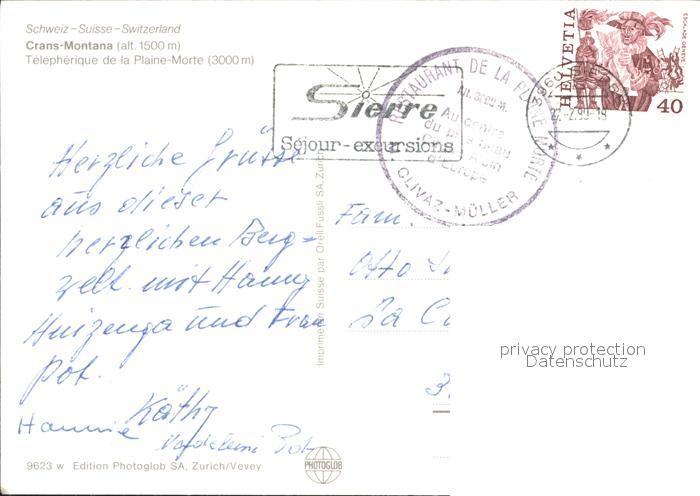 Schweiz – Suisse – Switzerland
Crans-Montana (alt. 1500 m)
Téléphérique de la Plaine-Morte (3000 m)
Sierre
Séjour - excursions
RESTAURANT DE LA PLAINE MORTE
Alt. 3000 M.
Au centre
du
d'Europe
CLIVAZ-MÜLLER
3960 SIERRE
HELVETIA
ESCALADE GENÈVE
40
Herzliche Grüsse
aus dieser
herzlichen Berg-
welt mit Hanny
Huizenga und Frau
Pot.
Käthy
Hannie
Pot
Fam.
Otto
3
Imprimé en Suisse par Orell Füssli SA, Zurich
privacy protection
Datenschutz
9623 w Edition Photoglob SA, Zurich/Vevey
PHOTOGLOB